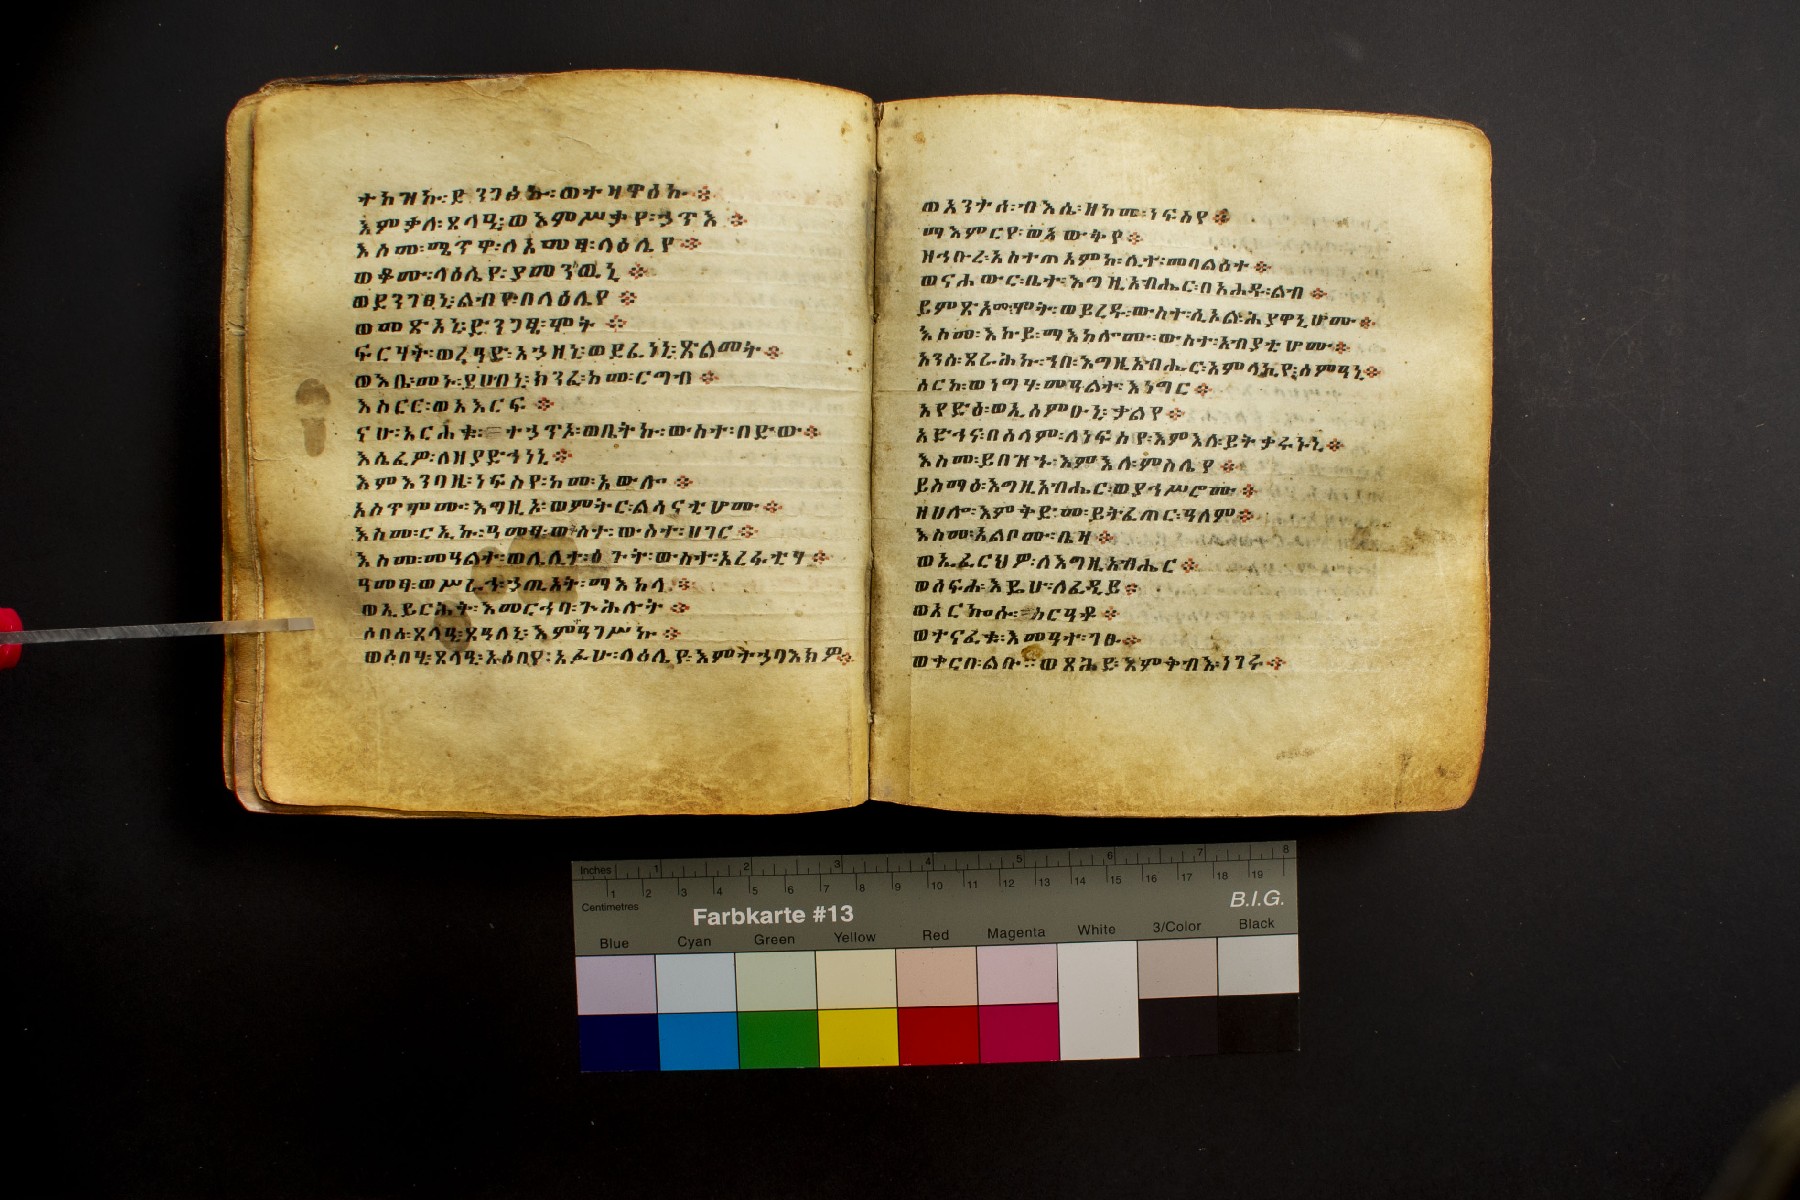 ተከዝኩ፡ደንገፅኩ፡ወተሃዋዕኩ።
እምቃለ፡ጸላዒ፡ወእምሥቃየ፡ኃጥእ።
እስመ፡ሜጥዋ፡ለአመፃ፡ላዕሌየ።
ወቆሙ፡ላዕሌየ፡ያመንዉኒ።
ወደንገፀኒ፡ልብየ፡በላዕሌየ።
ወመጽአኒ፡ድንጋፄ፡ሞት።
ፍርሃት፡ወረዓድ፡አኃዘኒ፡ወደፈነኒ፡ጽልመት።
ወእቤ፡መኑ፡ይሁበኒ፡ክንፈ፡ከመ፡ርግብ።
እስርር፡ወአእርፍ።
ናሁ፡አርሐቁ፡ተኃጥኦ፡ወቤትኩ፡ውስተ፡በድው።
እሴፈዎ፡ለዘያድኅነኒ።
እምእንባዜ፡ነፍስየ፡ከመ፡አውሎ።
አስጥሞሙ፡እግዚኦ፡ወምትር፡ልሳናቲሆሙ።
እስመ፡ርኢኩ፡ዓመፃ፡ወቅስተ፡ውስተ፡ሀገር።
እስመ፡መዓልተ፡ወሌሊተ፡ዕጉት፡ውስተ፡አረፋቲሃ።
ዓመፃ፡ወሥራኅ፡ኃጢአት፡ማእከላ።
ወኢይርሕቅ፡እመርኅባ፡ጒሕሉት።
ሶበሰ፡ጸላዒ፡ጸዓለኒ፡እምዓገሥኩ።
ወሶበሂ፡ጸላዒ፡አዕበየ፡አፉሁ፡ላዕሌየ፡እምትኃባእክዎ።
ወአንትሰ፡ብእሲ፡ዘከመ፡ነፍስየ።
ማእምርየ፡ወአውቅየ።
ዘኅቡረ፡አስተጠዐምከ፡ሊተ፡መባልዕተ።
ወናሐውር፡ቤተ፡እግዚአብሔር፡በአሐዱ፡ልብ።
ይምጽኦሙ፡ሞት፡ወይረዱ፡ውስተ፡ሲኦል፡ሕያዋኒሆሙ።
እስመ፡እኩይ፡ማእከሎሙ፡ውስተ፡አብያቲሆሙ።
አንሰ፡ጸራሕኩ፡ኀበ፡እግዚአብሔር፡አምላኪየ፡ሰምዓኒ።
ሰርከ፡ወነግሃ፡መዓልተ፡እነግር።
አየድዕ፡ወኢሰምዑኒ፡ቃልየ።
አድኅና፡በሰላም፡ለነፍስየ፡እምእለ፡ይትቃረኑኒ።
እስመ፡ይበዝኁ፡እምእለ፡ምስሌየ።
ይስማዕ፡እግዚአብሔር፡ወያኅሥሮሙ።
ዘሀሎ፡እምቅድመ፡ይትፈጠር፡ዓለም።
እስመ፡አልቦሙ፡ቤዛ።
ወኢፈርህዎ፡ለእግዚአብሔር።
ወሰፍሐ፡እዴሁ፡ለፈዲይ።
ወአርኰሱ፡ሥርዓቶ።
ወተናፈቁ፡እመዓተ፡ገፁ።
ወቀርበ፡ልቡ፡ወጸሕይ፡እምቅብእ፡ነገሩ።
Inches 1 2 3 4 5 6 7 8
Centimetres 1 2 3 4 5 6 7 8 9 10 11 12 13 14 15 16 17 18 19
Farbkarte #13 B.I.G.
Blue Cyan Green Yellow Red Magenta White 3/Color Black